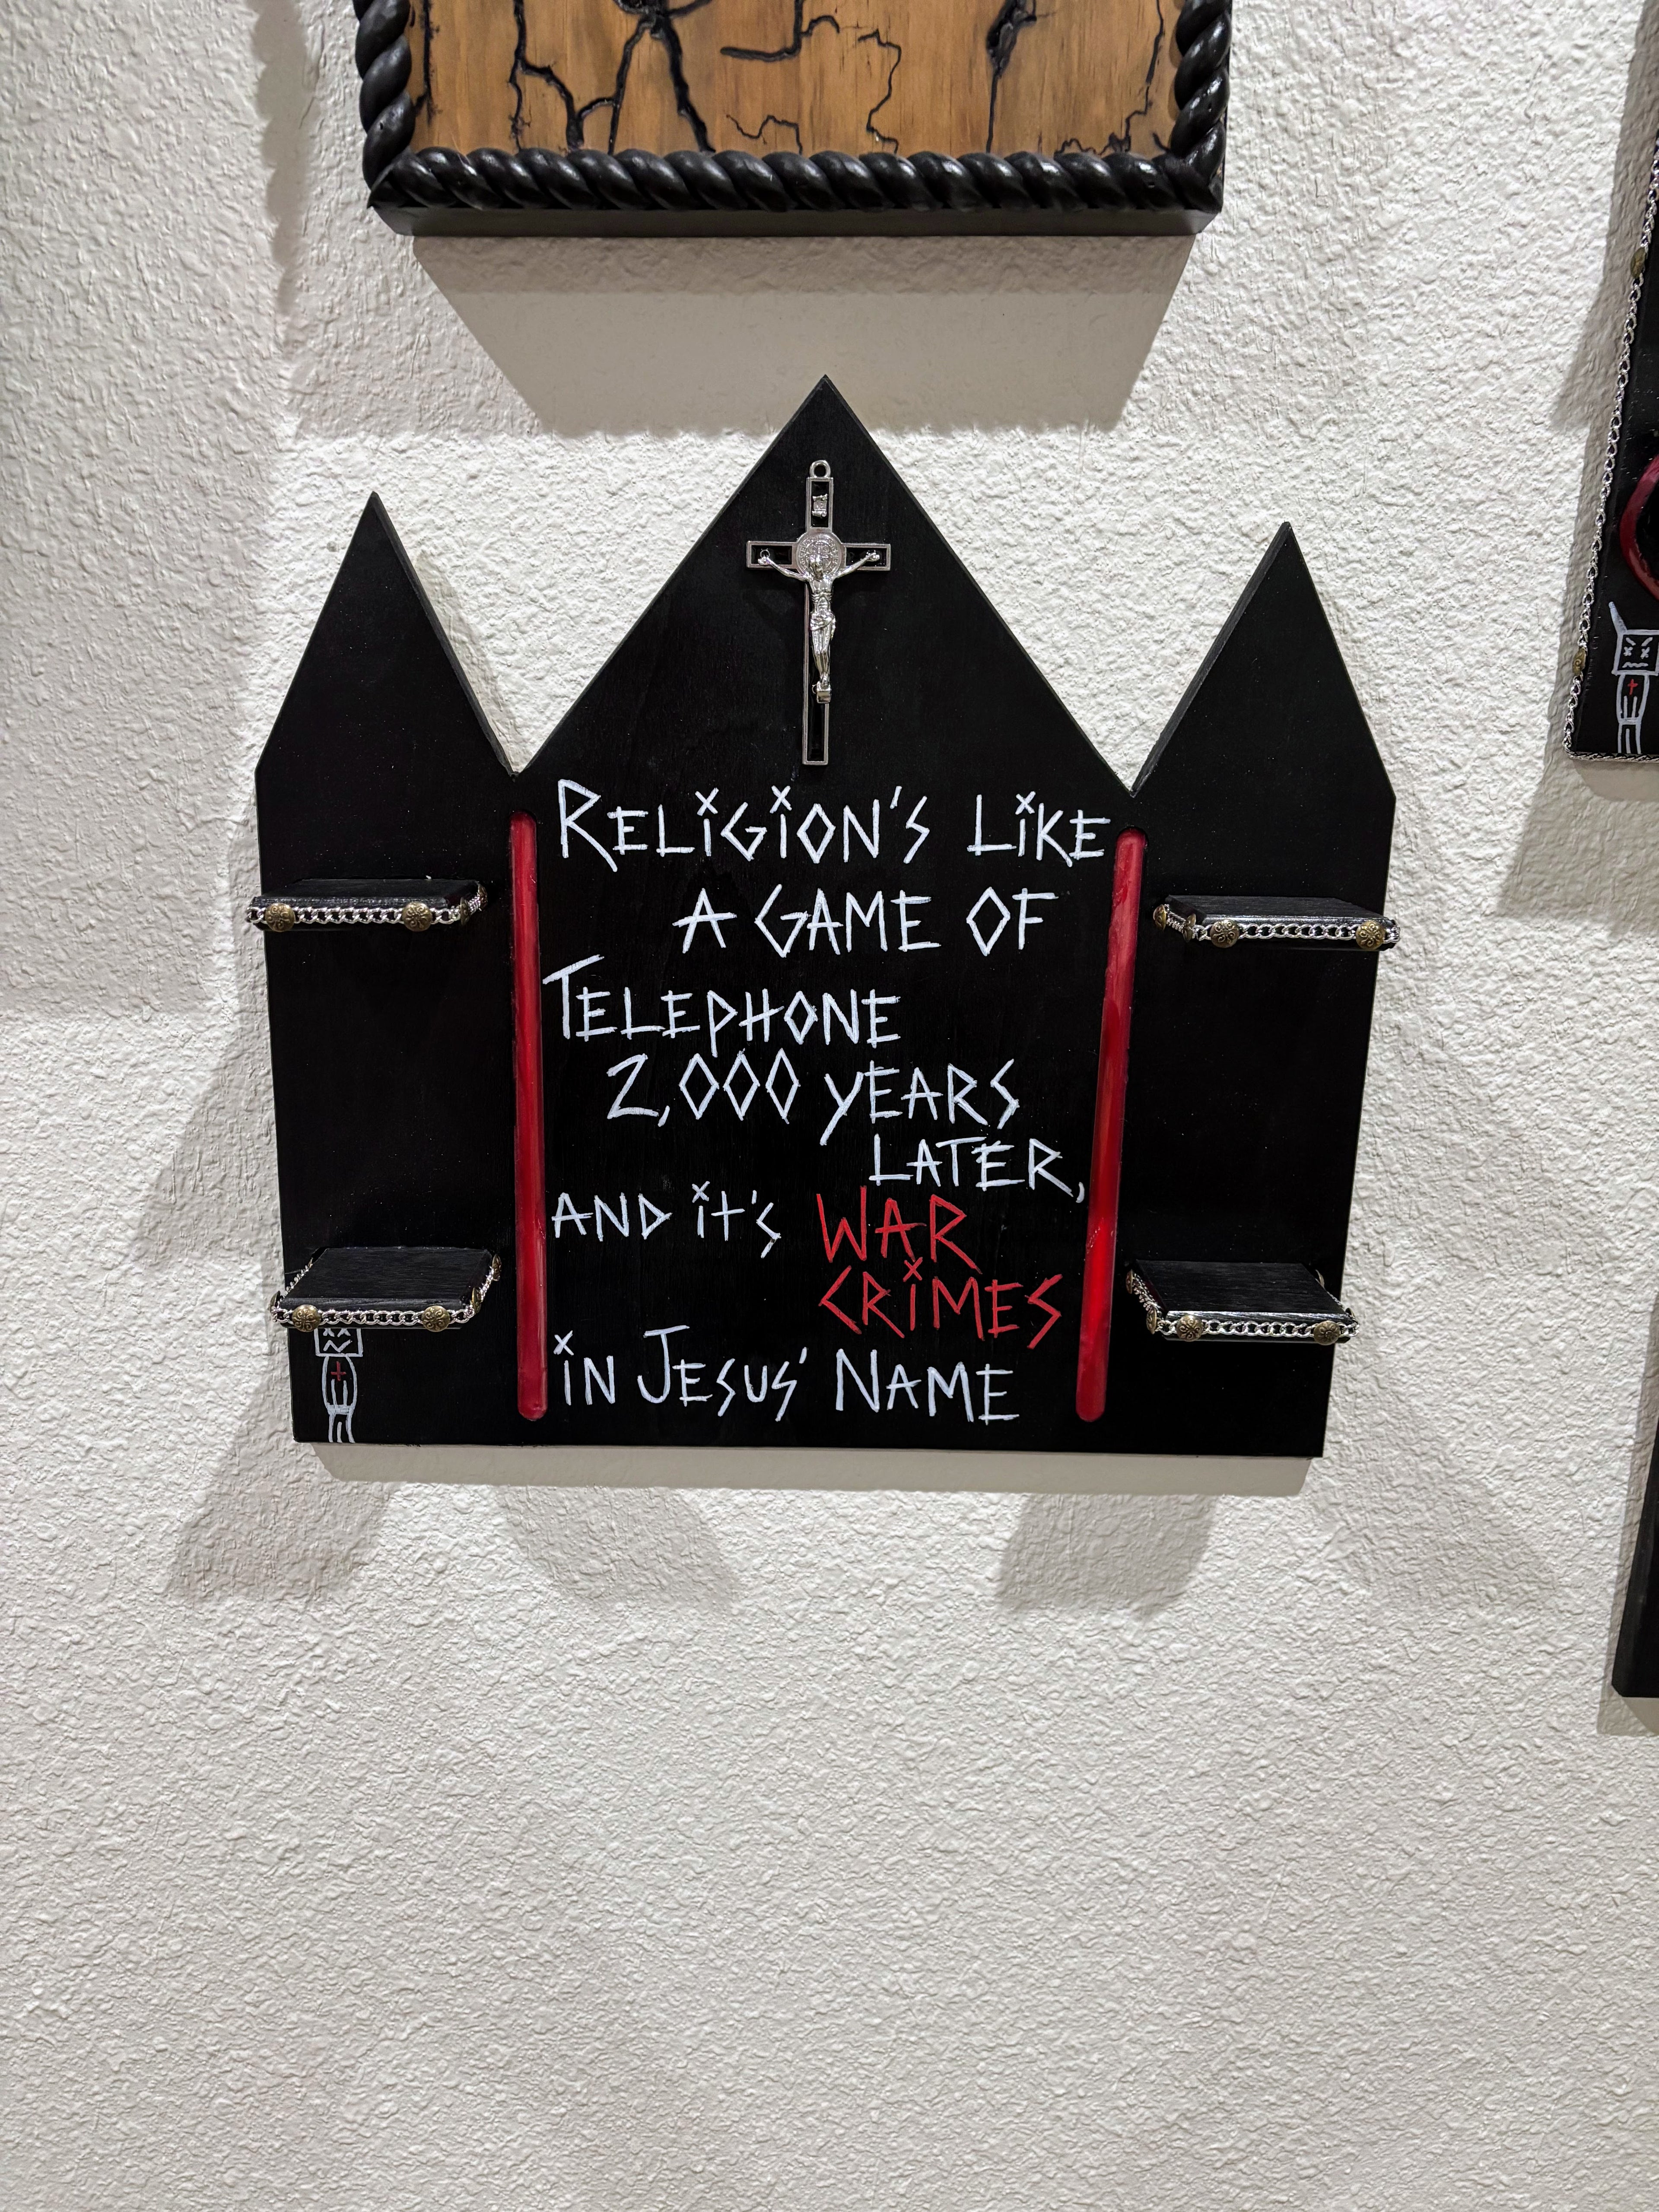 RELiGiON'S LiKE
A GAME OF
TELEPHONE
2,000 YEARS
LATER,
AND it's WAR
CRiMES
iN JESUS' NAME